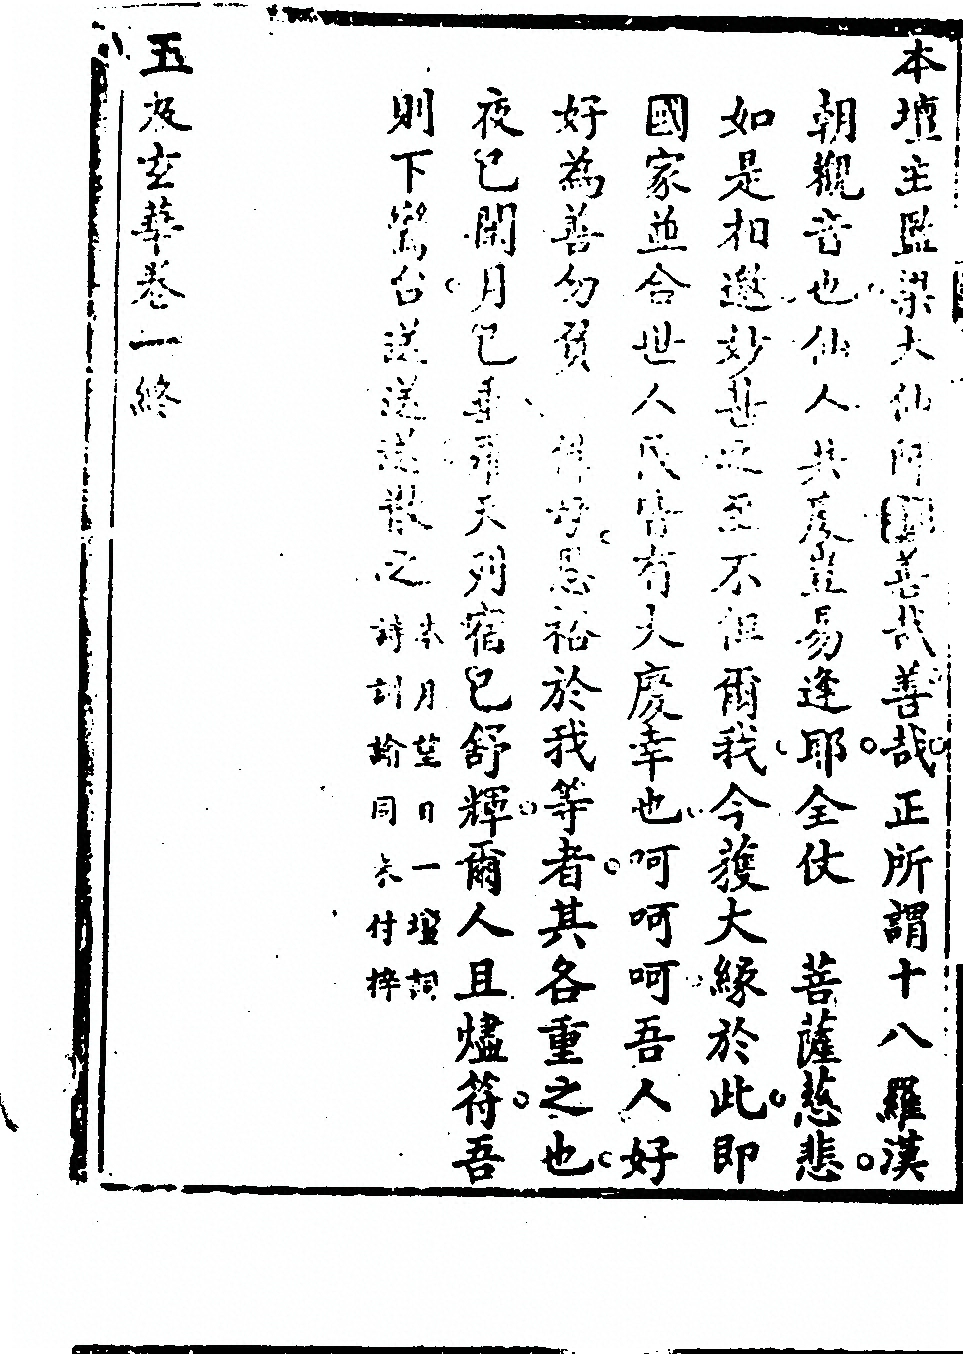 本壇主監梁大仙師 善哉善哉正所謂十八羅漢
朝觀音也仙人共慶豈易逢耶全仗 菩薩慈悲
如是相邀妙甚之至不但爾我今獲大緣於此即
國家並合世人民皆有大慶幸也呵呵呵吾人好
好為善勿負 佛母恩裕於我等者其各重之也
夜已闌月已垂 天列宿已舒輝爾人且燼符吾
則下鸞台送送送散之
本月望日一壇詞
詩訓諭同 付梓
五 玄華卷一終